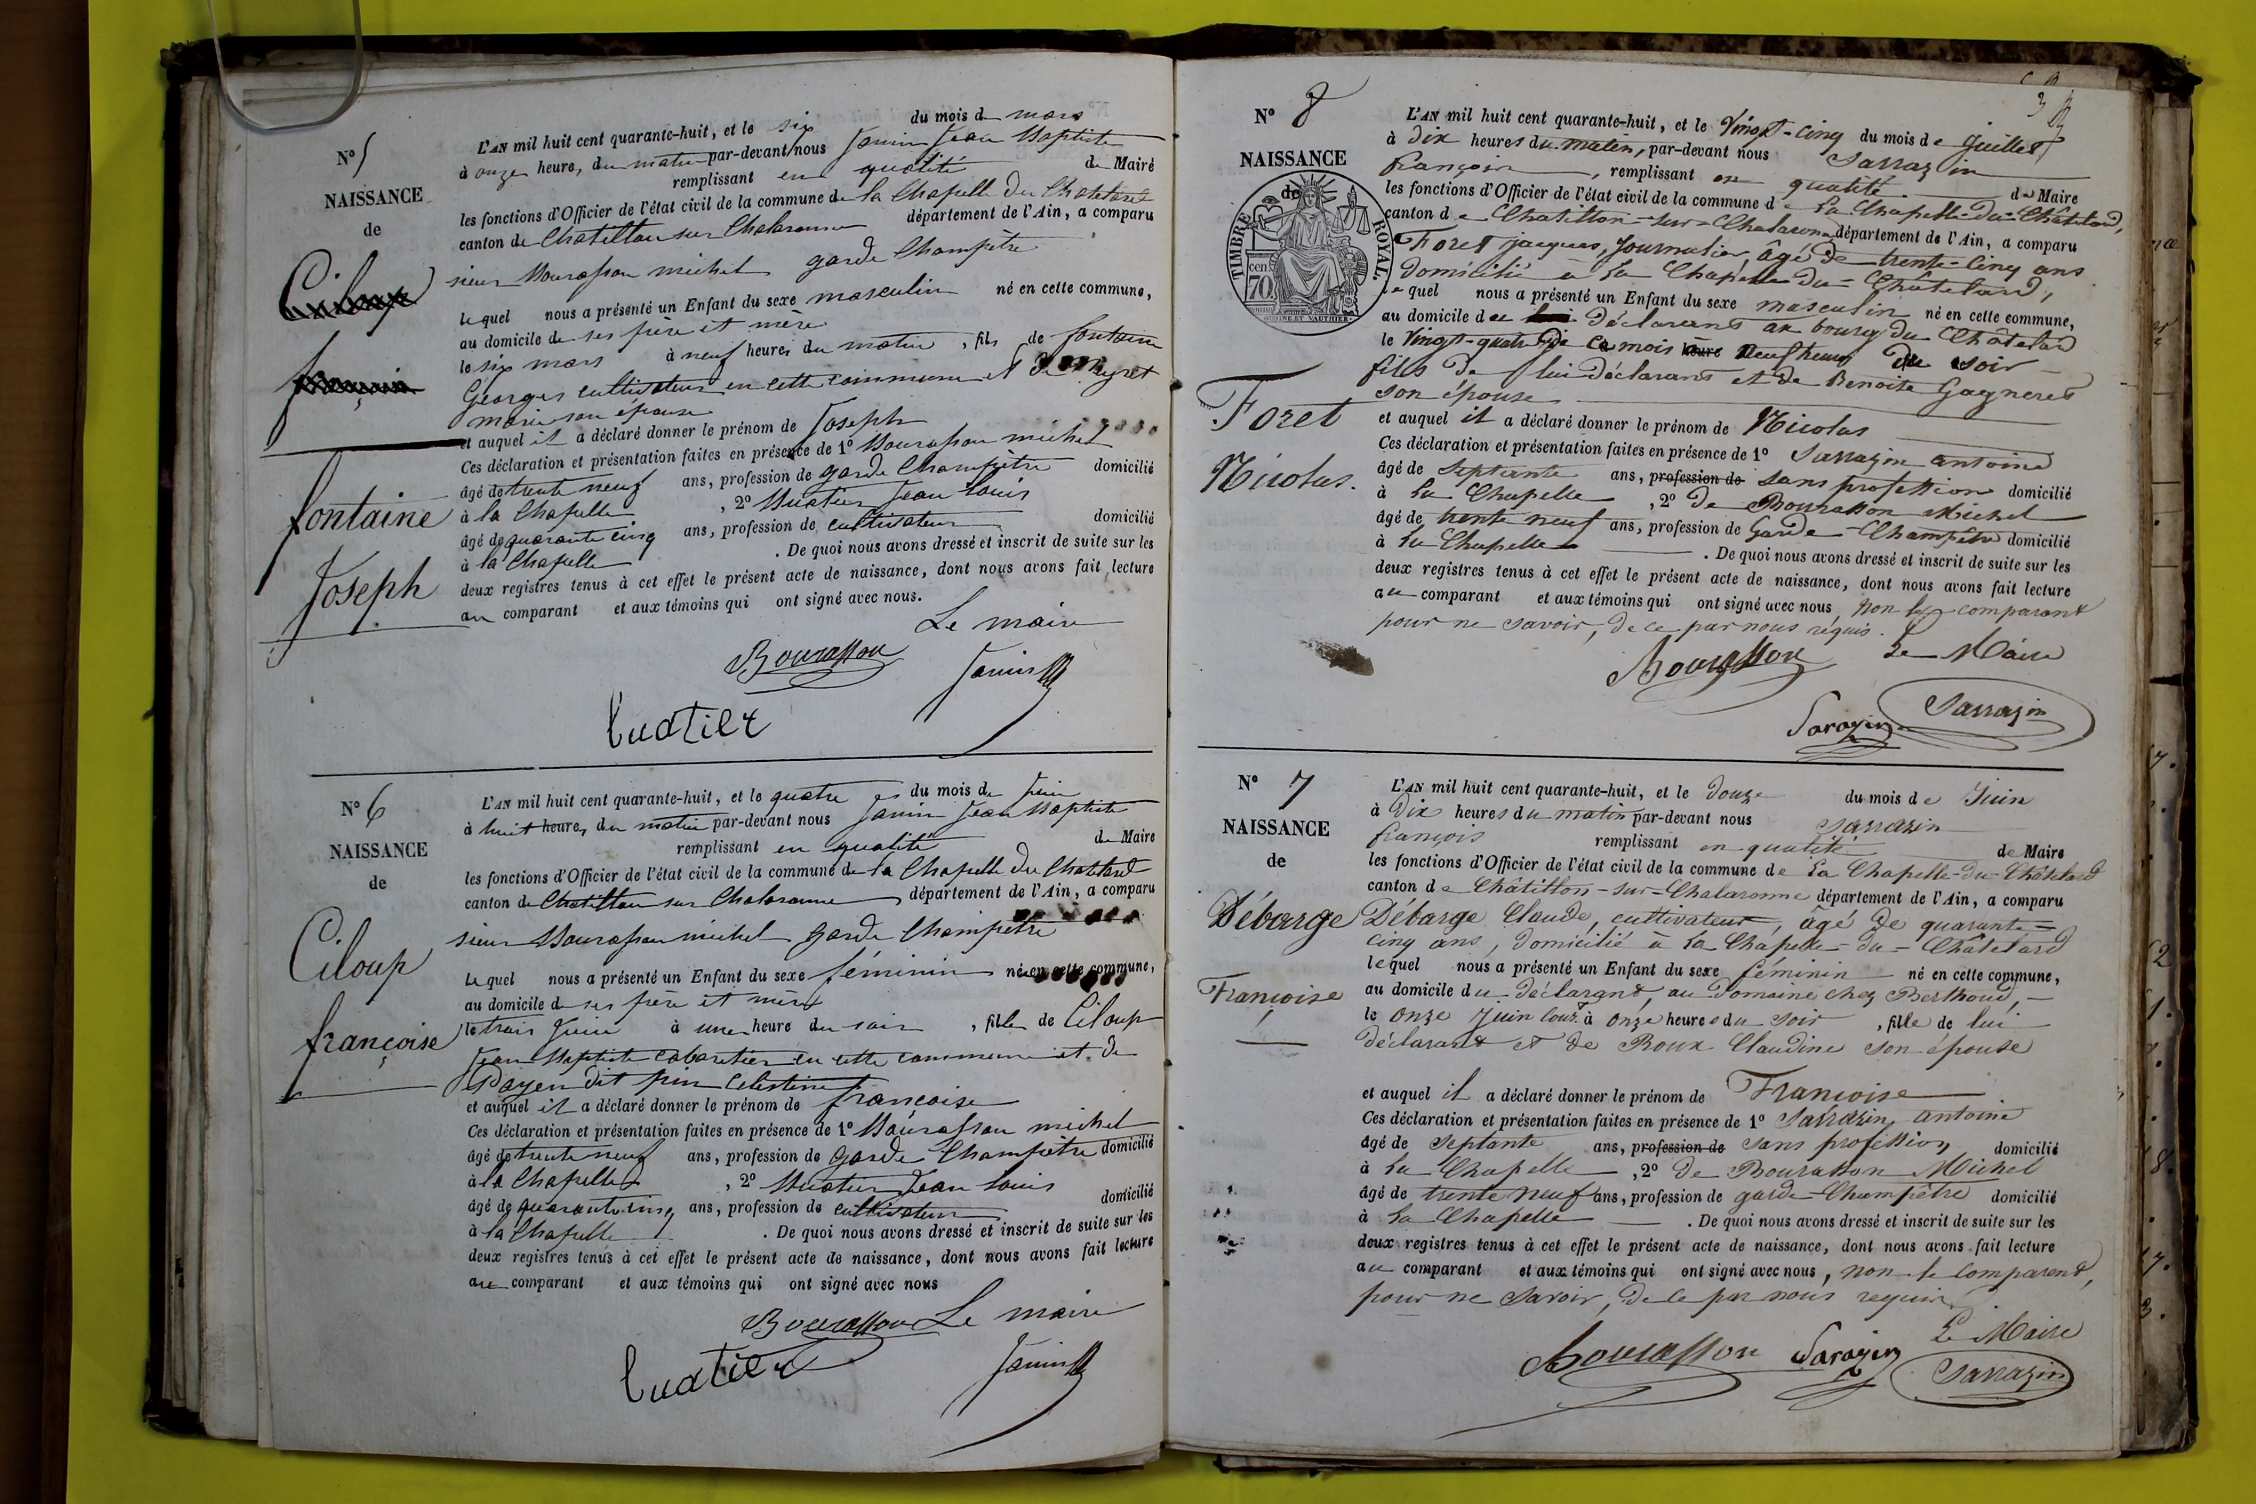 N° 5
NAISSANCE
de
fontaine
Joseph
L'AN mil huit cent quarante-huit, et le six du mois de mars
à onze heure, du matin par-devant nous Janin Jean Baptiste
remplissant en qualité de Maire
les fonctions d'Officier de l'état civil de la commune de la Chapelle du Chatelard
canton de Chatillon sur Chalaronne département de l'Ain, a comparu
sieur Bourasson michel garde Champêtre
lequel nous a présenté un Enfant du sexe masculin né en cette commune,
au domicile de ses père et mère
le six mars à neuf heures du matin, fils de fontaine
Georges cultivateur en cette commune et de
marie son épouse
et auquel il a déclaré donner le prénom de Joseph
Ces déclaration et présentation faites en présence de 1° Bourasson michel
âgé de trente neuf ans, profession de garde Champêtre domicilié
à la Chapelle, 2° Jean Louis
âgé de quarante cinq ans, profession de cultivateur domicilié
à la Chapelle. De quoi nous avons dressé et inscrit de suite sur les
deux registres tenus à cet effet le présent acte de naissance, dont nous avons fait lecture
au comparant et aux témoins qui ont signé avec nous.
Le maire
Bourasson
Janin
N° 6
NAISSANCE
de
Ciloup
françoise
L'AN mil huit cent quarante-huit, et le quatre du mois de Juin
à huit heure, du matin par-devant nous Janin Jean Baptiste
remplissant en qualité de Maire
les fonctions d'Officier de l'état civil de la commune de la Chapelle du Chatelard
canton de Chatillon sur Chalaronne, département de l'Ain, a comparu
sieur Bourasson michel garde Champêtre
lequel nous a présenté un Enfant du sexe féminin né en cette commune,
au domicile de ses père et mère
le trois Juin à une heure du soir, fille de Ciloup
Jean Baptiste cabaretier en cette commune et de
Payen dit pin Celestine
et auquel il a déclaré donner le prénom de francoise
Ces déclaration et présentation faites en présence de 1° Bourasson michel
âgé de trente neuf ans, profession de garde Champêtre domicilié
à la Chapelle, 2° Jean Louis
âgé de quarante cinq ans, profession de cultivateur domicilié
à la Chapelle. De quoi nous avons dressé et inscrit de suite sur les
deux registres tenus à cet effet le présent acte de naissance, dont nous avons fait lecture
au comparant et aux témoins qui ont signé avec nous
Bourasson Le maire
Janin
N° 8
NAISSANCE
de
TIMBRE ROYAL.
cen. 70
Foret
Nicolas.
L'AN mil huit cent quarante-huit, et le Vingt-cinq du mois de Juillet
à Dix heures du matin, par-devant nous Sarrazin
françois, remplissant en qualité de Maire
les fonctions d'Officier de l'état civil de la commune de La Chapelle-du-Châtelard,
canton de Chatillon-sur-Chalaronne département de l'Ain, a comparu
Foret jacques, Journalier, âgé de trente-cinq ans
domicilié à La Chapelle du-Châtelard,
Lequel nous a présenté un Enfant du sexe masculin né en cette commune,
au domicile de déclarant au bourg du Châtelard
le Vingt-quatre de ce mois heure neuf heures du soir
fils de lui déclarant et de Benoite Gagneres
son épouse
et auquel il a déclaré donner le prénom de Nicolas
Ces déclaration et présentation faites en présence de 1° Sarrazin antoine
âgé de Septante ans, profession de Sans profession domicilié
à La Chapelle, 2° de Bourasson Michel
âgé de trente neuf ans, profession de Garde-Champêtre domicilié
à La Chapelle. De quoi nous avons dressé et inscrit de suite sur les
deux registres tenus à cet effet le présent acte de naissance, dont nous avons fait lecture
au comparant et aux témoins qui ont signé avec nous, non le comparant
pour ne savoir, de ce par nous requis.
Bourasson Le Maire
Sarazin Sarrazin
N° 7
NAISSANCE
de
Débarge
Françoise
L'AN mil huit cent quarante-huit, et le douze du mois de Juin
à Dix heures du matin par-devant nous Sarrazin
françois remplissant en qualité de Maire
les fonctions d'Officier de l'état civil de la commune de La Chapelle-du-Châtelard
canton de Châtillon-sur-Chalaronne département de l'Ain, a comparu
Débarge Claude, cultivateur, âgé de quarante=
cinq ans, domicilié à La Chapelle-du-Châtelard
lequel nous a présenté un Enfant du sexe féminin né en cette commune,
au domicile du déclarant, au domaine chez Berthoud,
le onze Juin cour. à onze heures du soir, fille de lui
déclarant et de Roux Claudine son épouse
et auquel il a déclaré donner le prénom de Francoise
Ces déclaration et présentation faites en présence de 1° Sarrazin antoine
âgé de Septante ans, profession de Sans profession domicilié
à La Chapelle, 2° de Bourasson Michel
âgé de trente neuf ans, profession de garde-Champêtre domicilié
à La Chapelle. De quoi nous avons dressé et inscrit de suite sur les
deux registres tenus à cet effet le présent acte de naissance, dont nous avons fait lecture
au comparant et aux témoins qui ont signé avec nous, non le comparant,
pour ne savoir, de ce par nous requis
Le Maire
Bourasson Sarazin Sarrazin